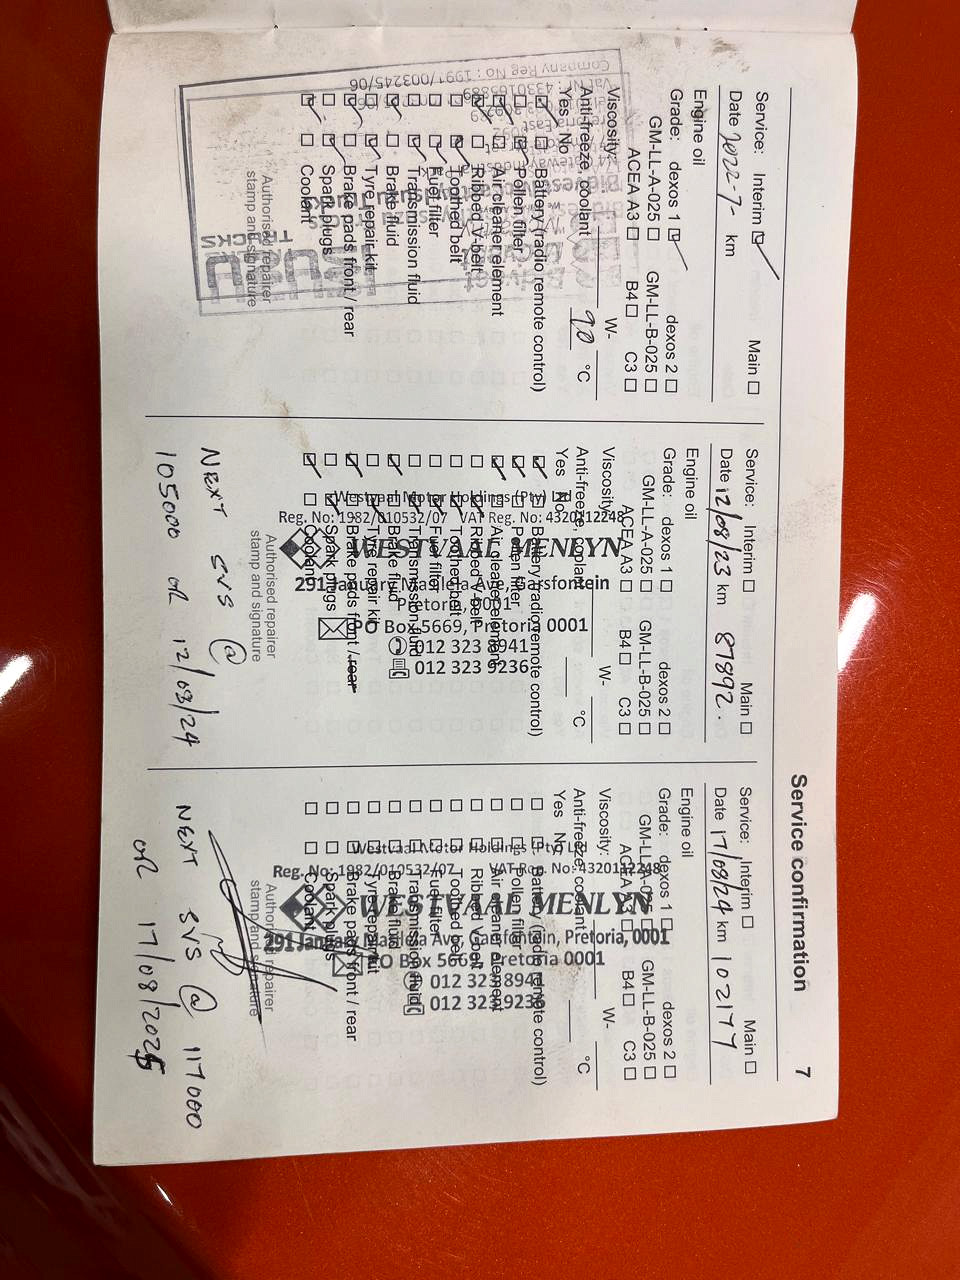 Service confirmation 7
Service: Interim ☑ Main ☐
Date 2022-7- km
Engine oil
Grade: dexos 1 ☑ dexos 2 ☐
GM-LL-A-025 ☐ GM-LL-B-025 ☐
ACEA A3 ☐ B4 ☐ C3 ☐
Viscosity: W-
Anti-freeze, coolant 90 °C
Yes No
Battery (radio remote control)
Pollen filter
Air cleaner element
Ribbed V-belt
Toothed belt
Fuel filter
Transmission fluid
Brake fluid
Tyre repair kit
Brake pads front / rear
Spark plugs
Coolant
Authorised repairer
stamp and signature
Company Reg No : 1991/003245/06
TRUCKS
Service: Interim ☐ Main ☐
Date 12/08/23 km 87892.
Engine oil
Grade: dexos 1 ☐ dexos 2 ☐
GM-LL-A-025 ☐ GM-LL-B-025 ☐
ACEA A3 ☐ B4 ☐ C3 ☐
Viscosity: W-
Anti-freeze, coolant °C
Yes No
Battery (radio remote control)
Pollen filter
Air cleaner element
Ribbed V-belt
Toothed belt
Fuel filter
Transmission fluid
Brake fluid
Tyre repair kit
Brake pads front / rear
Spark plugs
Coolant
Authorised repairer
stamp and signature
Westvaal Motor Holdings (Pty)
Reg. No: 1982/010532/07 VAT Reg. No: 4320112248
WESTVAAL MENLYN
291 January Masilela Ave, Garsfontein
Pretoria, 0001
PO Box 5669, Pretoria 0001
012 323 8941
012 323 9236
NEXT SVS @
105000 OR 12/08/24
Service: Interim ☐ Main ☐
Date 17/08/24 km 102177
Engine oil
Grade: dexos 1 ☐ dexos 2 ☐
GM-LL-A-025 ☐ GM-LL-B-025 ☐
ACEA A3 ☐ B4 ☐ C3 ☐
Viscosity: W-
Anti-freeze, coolant °C
Yes No
Battery (radio remote control)
Pollen filter
Air cleaner element
Ribbed V-belt
Toothed belt
Fuel filter
Transmission fluid
Brake fluid
Tyre repair kit
Brake pads front / rear
Spark plugs
Coolant
Authorised repairer
stamp and signature
Westvaal Motor Holdings (Pty) L
Reg. No: 1982/010532/07 VAT Reg. No: 4320112248
WESTVAAL MENLYN
291 January Masilela Ave, Garsfontein, Pretoria, 0001
PO Box 5669, Pretoria 0001
012 323 8941
012 323 9236
NEXT SVS @ 117000
OR 17/08/2025